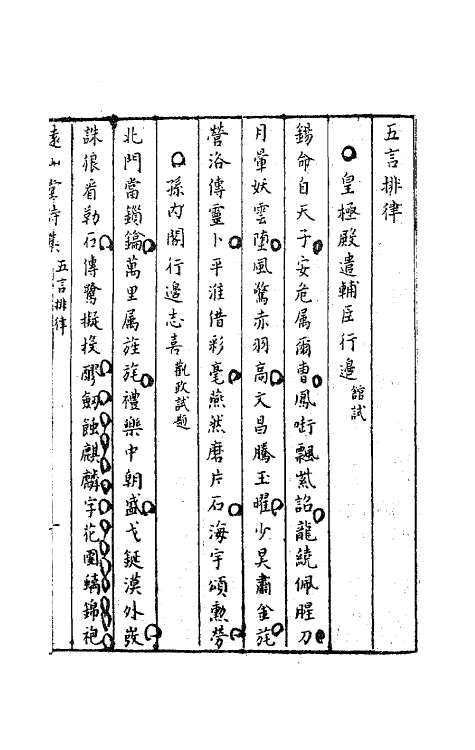 五言排律
皇極殿遣輔臣行邊 館試
錫命自天子安危屬爾曹鳳啣飄紫詔龍繞佩腥刀
月暈妖雲墮風驚赤羽高文昌騰玉曜少昊肅金旄
營洛傳靈卜平淮借彩毫燕然磨片石海宇頌勲勞
孫內閣行邊志喜 觀政試題
北門當鎖鑰萬里属旌旄禮樂中朝盛戈鋋漠外
誅狼看勒石傳鷺擬投醪劍蝕麒麟字花圍錦袍
詩集 五言排律